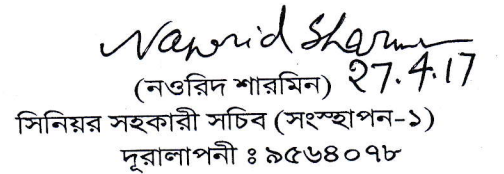 Nawrid Sharmin
(নওরিদ শারমিন) ২7.4.17
সিনিয়র সহকারী সচিব (সংস্হাপন-১)
দূরালাপনী ঃ ৯৫৬৪০৭৮